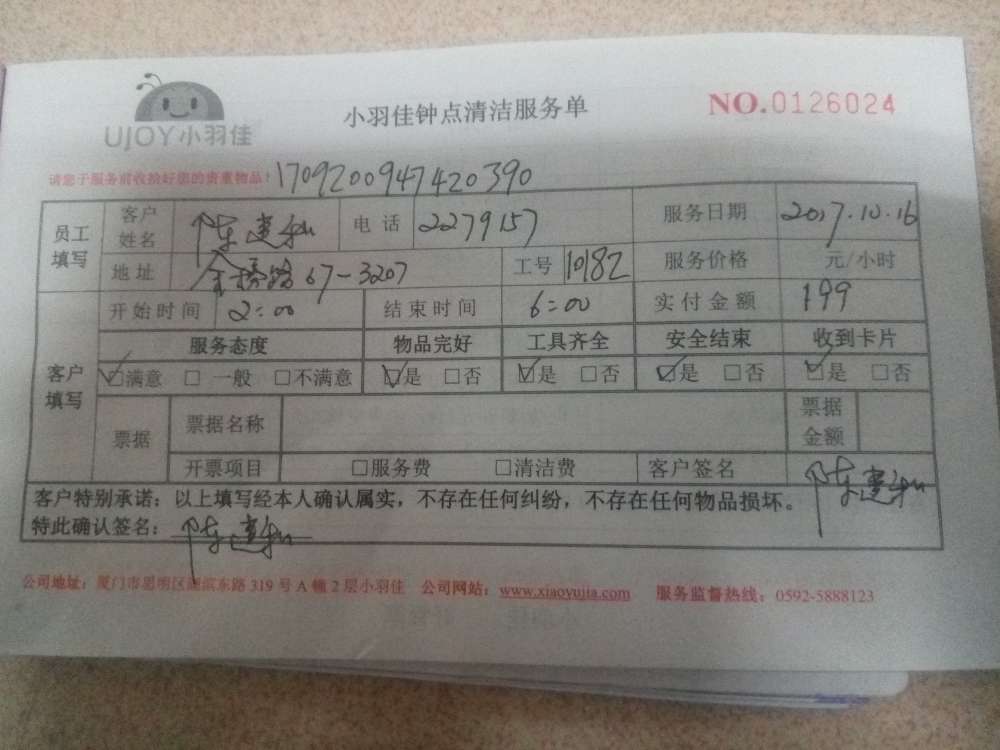 UJOY小羽佳
小羽佳钟点清洁服务单
NO.0126024
请您于服务前收拾好您的贵重物品! 1709200947420390
员工填写 客户姓名 陈建和 电话 2279157 服务日期 2017.10.16
地址 金桥路67-3207 工号 10182 服务价格 元/小时
开始时间 2:00 结束时间 6:00 实付金额 199
客户填写 服务态度 物品完好 工具齐全 安全结束 收到卡片
☑满意 □一般 □不满意 ☑是 □否 ☑是 □否 ☑是 □否 ☑是 □否
票据 票据名称 票据金额
开票项目 □服务费 □清洁费 客户签名 陈建和
客户特别承诺：以上填写经本人确认属实，不存在任何纠纷，不存在任何物品损坏。
特此确认签名：陈建和
公司地址：厦门市思明区湖滨东路319号A幢2层小羽佳 公司网站：www.xiaoyujia.com 服务监督热线：0592-5888123